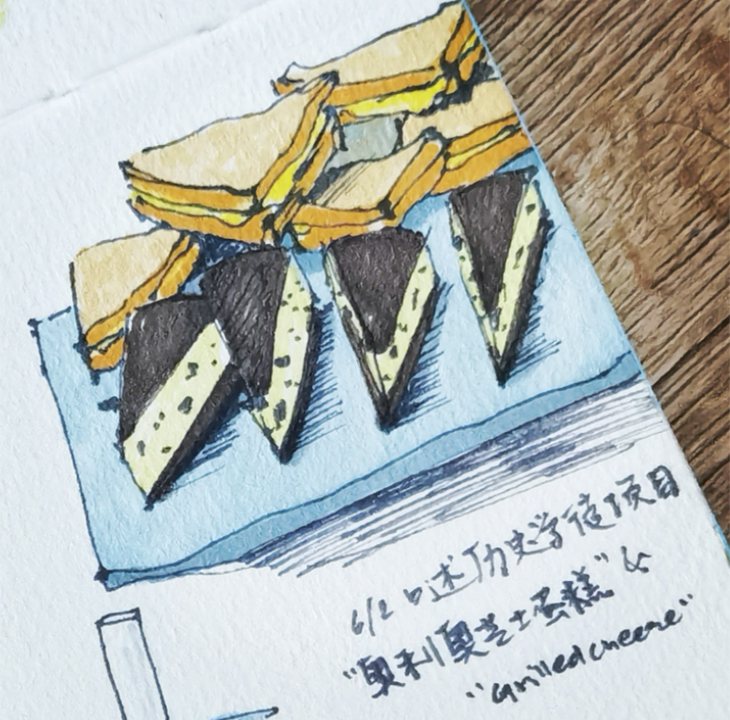 6/2 口述历史学徒项目
"奥利奥芝士蛋糕" &
"Grilled cheese"